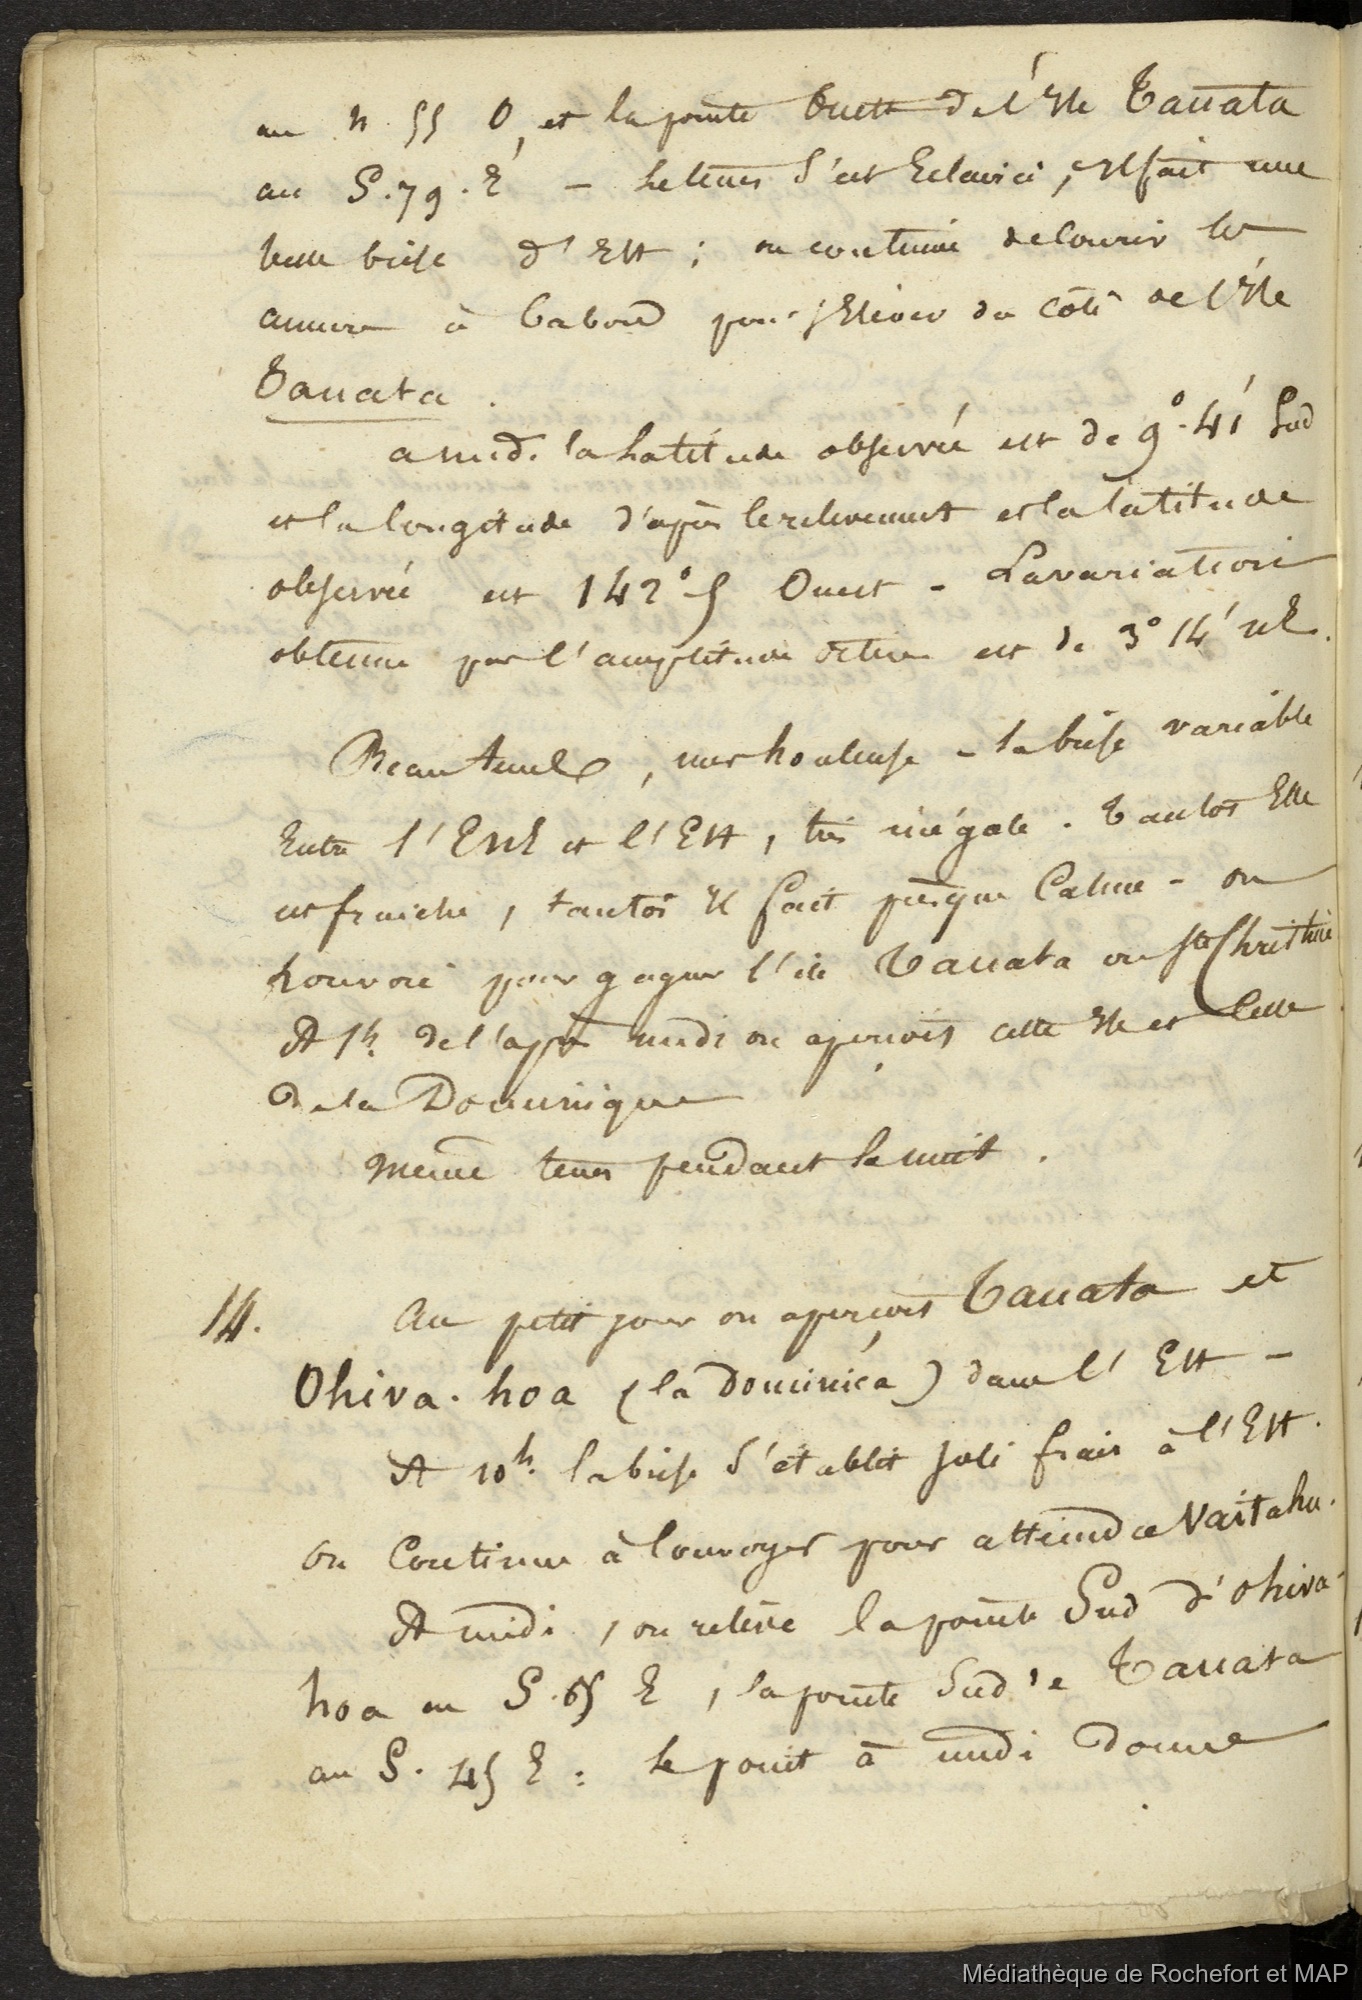 au N. 55 O, et la pointe Ouest de l'Ile Tauata
au S. 79. E - le tems s'est Eclairci, il fait une
belle brise d'Est ; on continue de courir les
amures à babord pour s'Elever du côté de l'Ile
Tauata.
a midi la latitude observée est de 9°. 41' Sud
et la longitude d'après le relevement et la latitude
observée est 142° 5 Ouest - La variation
obtenue par l'amplitude ortive est de 3° 14' NE.
Beau tems, mer houleuse - la brise variable
Entre l'ENE et l'Est, très inégale. Tantot Elle
est fraiche, tantot il fait presque Calme - on
louvoie pour gagner l'ile Tauata ou Ste Christine
A 1h. de l'après midi on aperçoit cette Ile et celle
de la Dominique
Même tems pendant la nuit.
14. Au petit jour on aperçoit Tauata et
Ohiva-hoa (la Dominica) dans l'Est -
A 10h. la brise s'établit joli frais à l'Est.
on Continue à louvoyer pour atteindre Vaitahu.
A midi, on relève la pointe Sud d'Ohiva-
hoa au S. 65 E, la pointe Sud de Tauata
au S. 45 E : le point à midi donne
Médiathèque de Rochefort et MAP